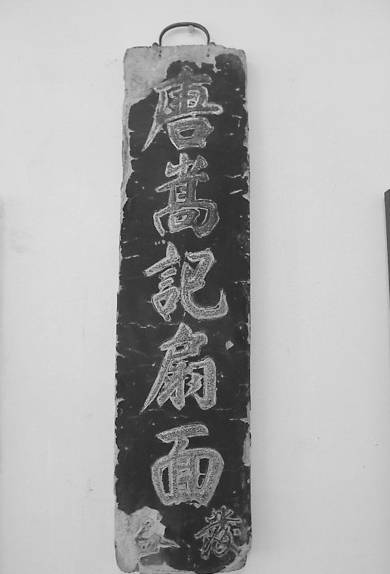 唐嵩記扇面
發